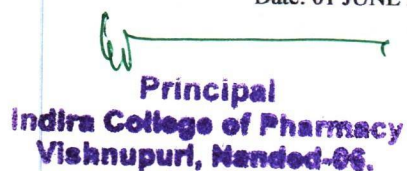 Date: 01 JUNE
Principal
Indira College of Pharmacy
Vishnupuri, Nanded-06.